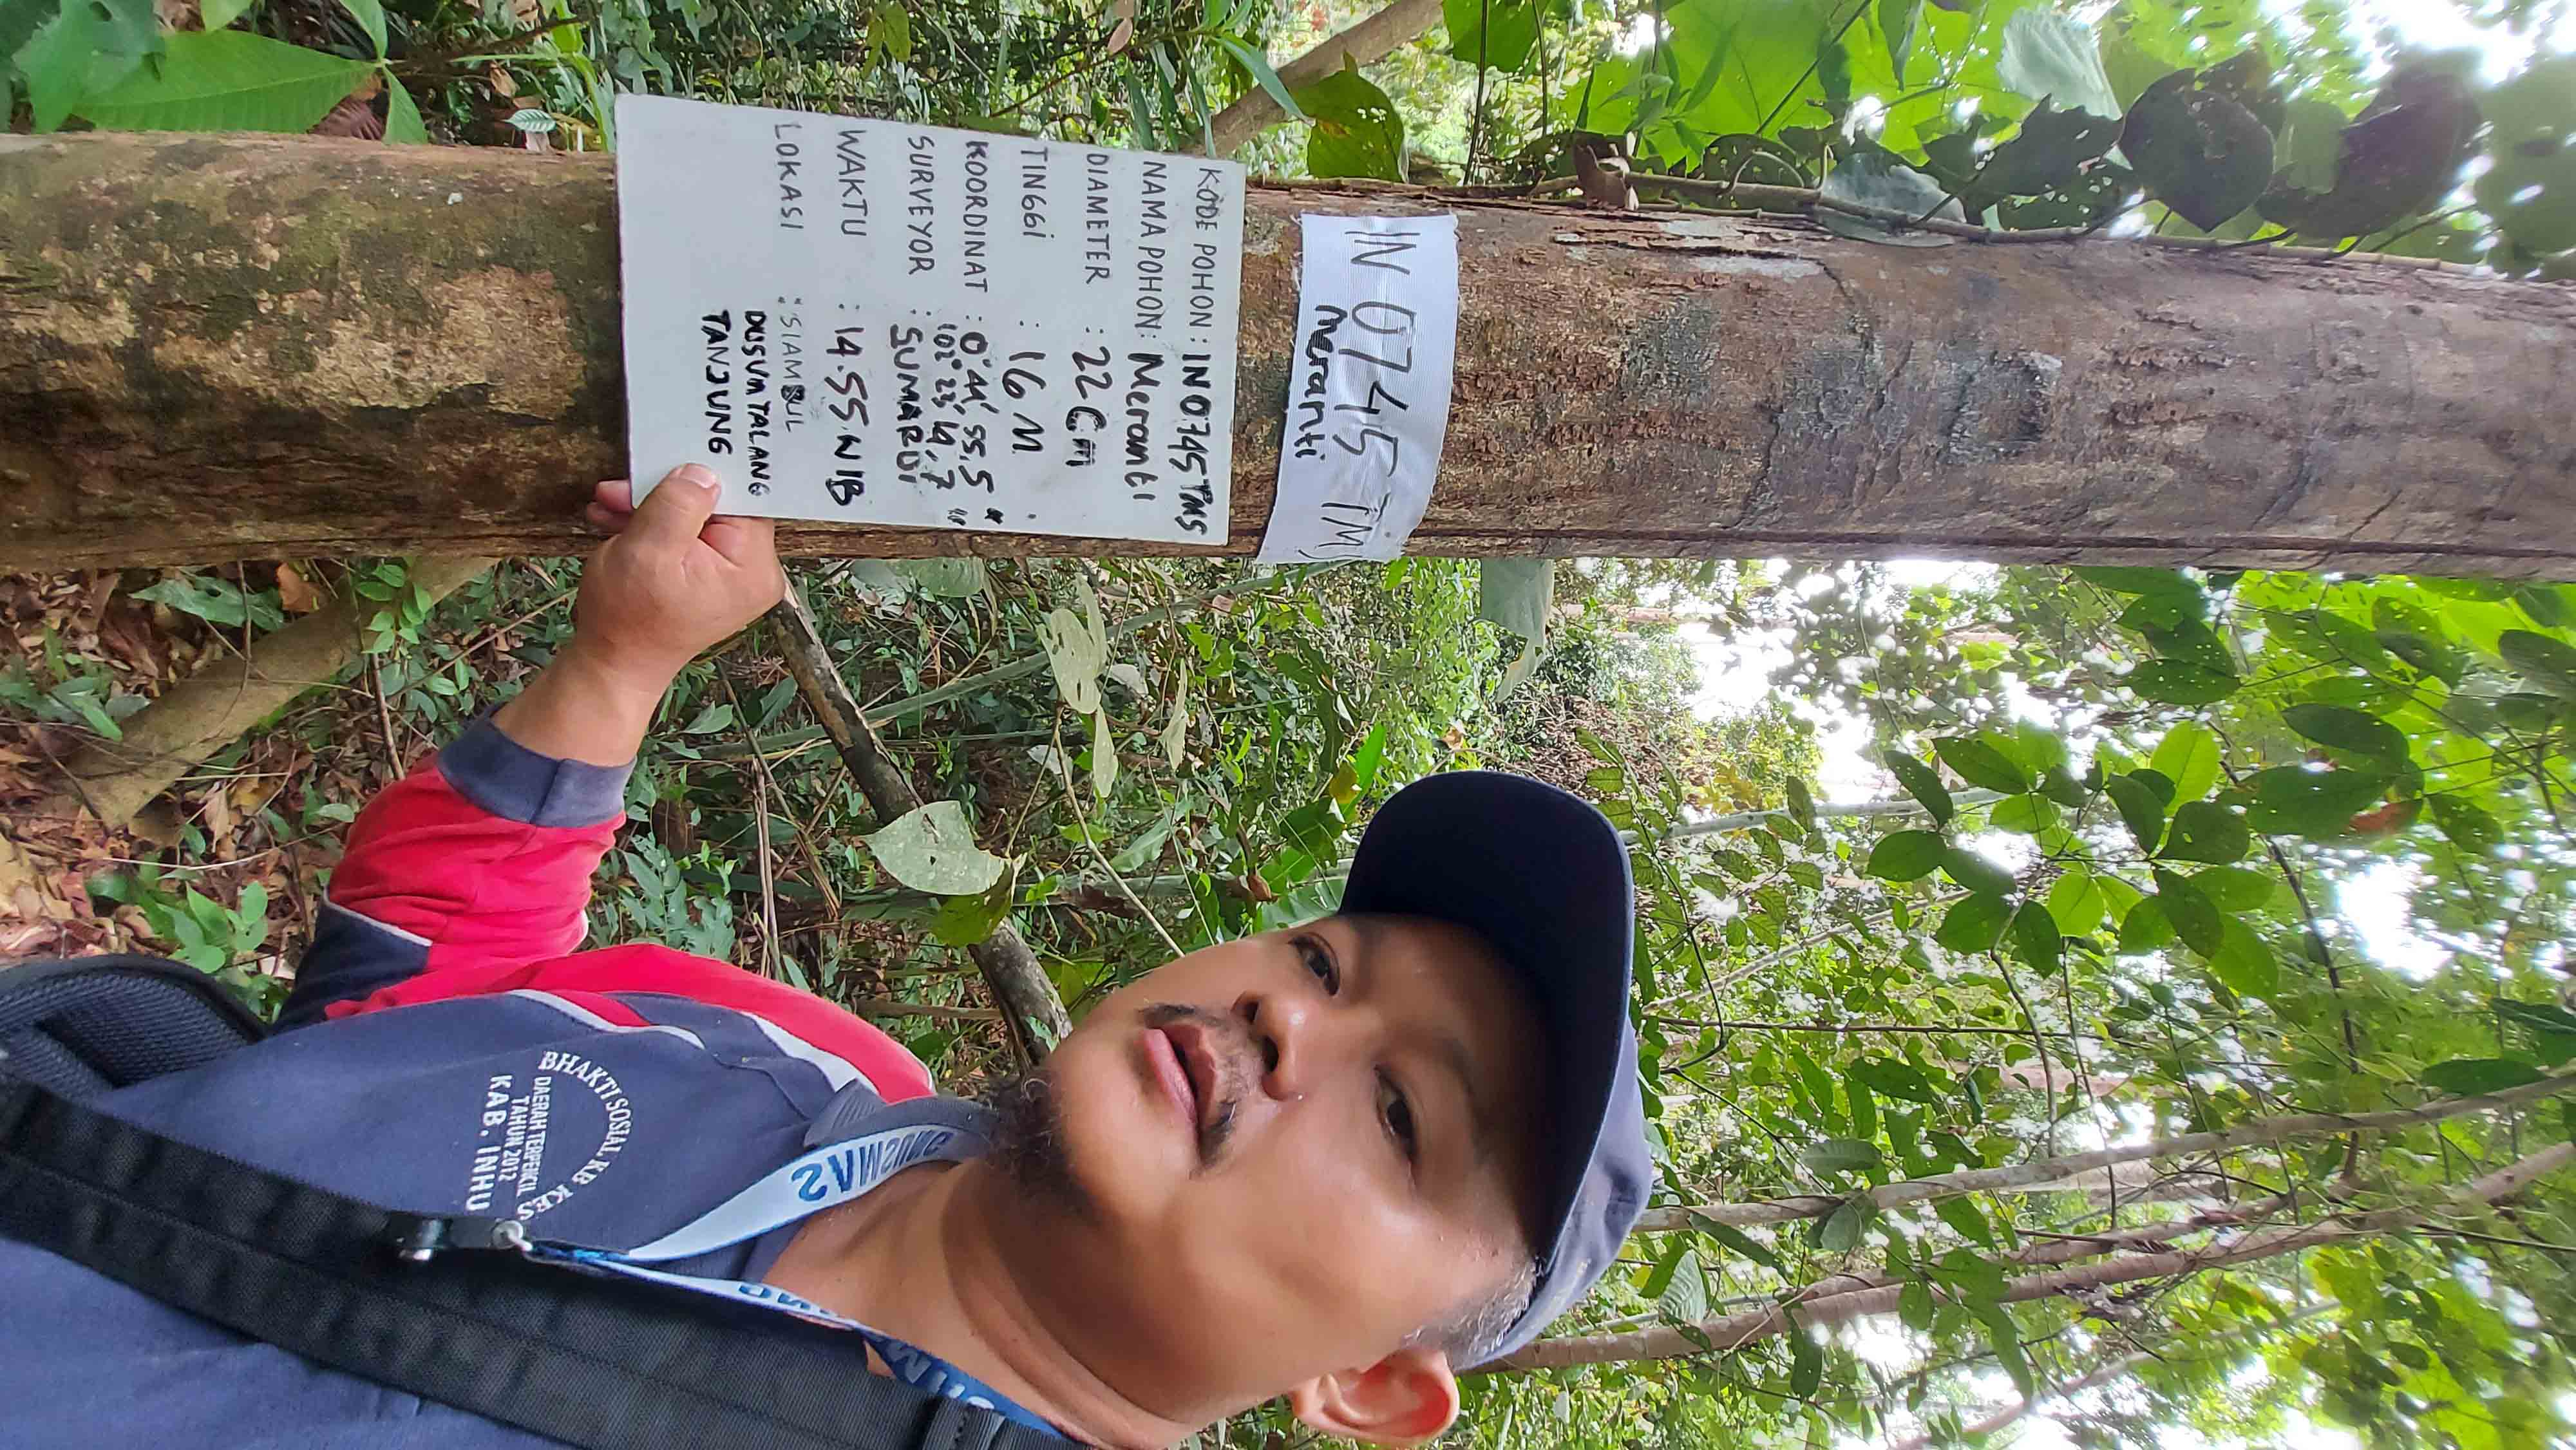 IN 0745 TM
Meranti
KODE POHON : IN0745 TMS
NAMA POHON : Meranti
DIAMETER : 22 Cm
TINGGI : 16 M
KOORDINAT : 0° 44' 55,5 "
102° 23' 14,7 "
SURVEYOR : SUMARDI
WAKTU : 14.55 WIB
LOKASI : SIAMBUL
DUSUN TALANG
TANJUNG
BHAKTI SOSIAL KB KES
DAERAH TERPENCIL
TAHUN 2012
KAB. INHU